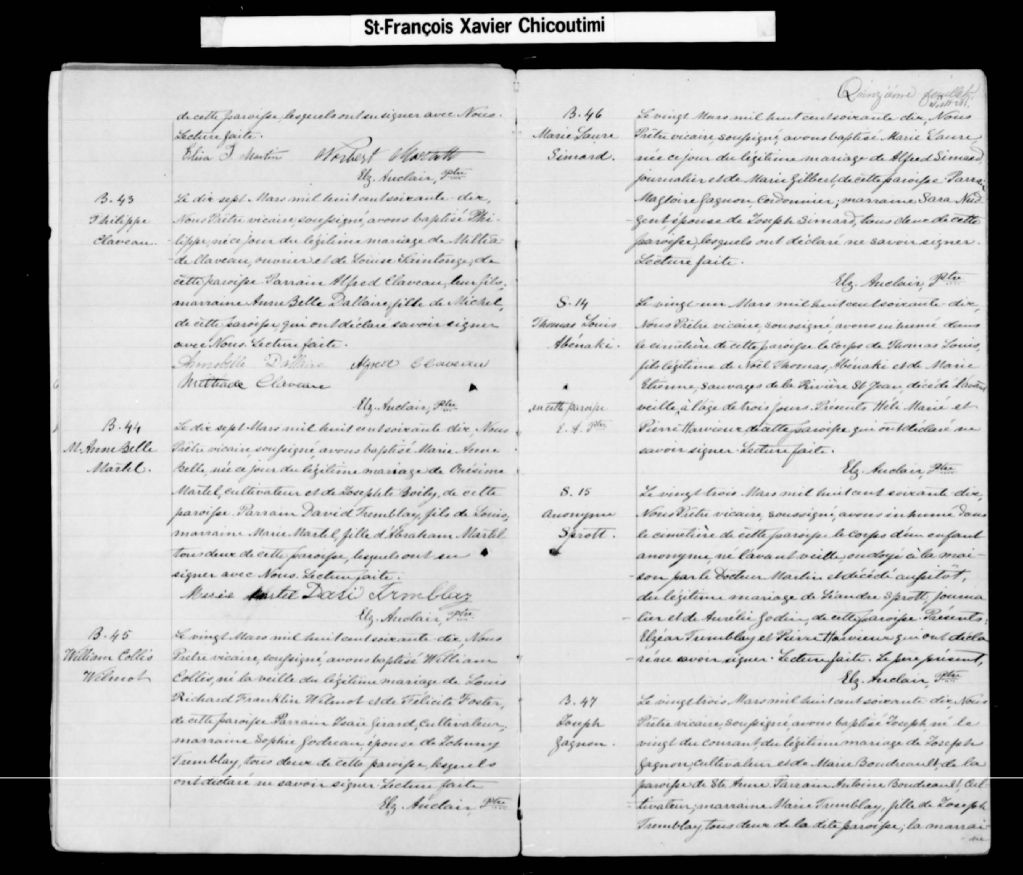 St-François Xavier Chicoutimi
de cette paroisse, lesquels ont su signer avec Nous.
Lecture faite.
Martin Norbert
Elz. Auclair, Ptre
B. 43
Philippe
Claveau.
Le dix sept Mars mil huit cent soixante dix,
Nous Prêtre vicaire, soussigné, avons baptisé Phi-
lippe, né ce jour du légitime mariage de Miltia-
de Claveau, ouvrier et de Louise Saintonge, de
cette paroisse. Parrain Alfred Claveau, leur fils,
marraine Anne Belle Dallaire, fille de Michel,
de cette paroisse qui ont déclaré savoir signer
avec Nous. Lecture faite.
Annabelle Dallaire Alfred Claveau
Miltiade Claveau
Elz. Auclair, Ptre
B. 44
M. Anne Belle
Martel.
Le dix sept Mars mil huit cent soixante dix, Nous
Prêtre vicaire soussigné avons baptisé Marie Anne
Belle, née ce jour du légitime mariage de Onésime
Martel, cultivateur et de Josephte Boily, de cette
paroisse. Parrain David Tremblay, fils de Louis,
marraine Marie Martel, fille d'Abraham Martel
tous deux de cette paroisse, lesquels ont su
signer avec Nous. Lecture faite.
Marie Martel Tremblay
Elz. Auclair, Ptre
B. 45
William Collis
Wilmot
Le vingt Mars mil huit cent soixante dix, Nous
Prêtre vicaire, soussigné avons baptisé William
Collis, né la veille du légitime mariage de Louis
Richard Franklin Wilmot et de Félicité Foster,
de cette paroisse. Parrain Isaïe Girard, cultivateur,
marraine Sophie Godreau, épouse de Johnny
Tremblay, tous deux de cette paroisse, lesquels
ont déclaré ne savoir signer. Lecture faite
Elz. Auclair, Ptre
Quinzième feuillet.
B. 46
Marie Laure
Simard.
Le vingt Mars mil huit cent soixante dix, Nous
Prêtre vicaire, soussigné, avons baptisé Marie Laure
née ce jour du légitime mariage de Alfred Simard,
journalier et de Marie Gilbert, de cette paroisse. Parrain
Magloire Gagnon, Cordonnier; marraine Sara Nud-
gent, épouse de Joseph Simard, tous deux de cette
paroisse, lesquels ont déclaré ne savoir signer.
Lecture faite.
Elz. Auclair, Ptre
S. 14
Thomas Louis
Abénaki.
Le vingt un Mars mil huit cent soixante dix,
Nous Prêtre vicaire, soussigné, avons inhumé dans
le cimetière de cette paroisse le corps de Thomas Louis,
fils légitime de Noël Thomas, Abénaki et de Marie
Etienne, sauvages de la Rivière St Jean, décédé l'avant
en cette paroisse
E. A. Ptre
veille, à l'âge de trois jours. Présents et
Pierre Harvieux de cette paroisse qui ont déclaré ne
savoir signer. Lecture faite.
Elz. Auclair, Ptre
S. 15
anonyme
Sprott.
Le vingt trois Mars mil huit cent soixante dix,
Nous Prêtre vicaire, soussigné, avons inhumé dans
le cimetière de cette paroisse le corps d'un enfant
anonyme, né l'avant veille, ondoyé à la mai-
son par le Docteur Martin et décédé aussitôt,
du légitime mariage de Léandre Sprott, journa-
lier et de Aurélie Godin, de cette paroisse. Présents,
Elzéar Tremblay et Pierre Harvieux qui ont décla-
ré ne savoir signer. Lecture faite. Le père présent,
Elz. Auclair, Ptre
B. 47
Joseph
Gagnon.
Le vingt trois Mars mil huit cent soixante dix Nous
Prêtre vicaire, soussigné, avons baptisé Joseph né le
vingt du courant, du légitime mariage de Joseph
Gagnon, Cultivateur et de Marie Boudreault, de la
paroisse de Ste Anne. Parrain Antoine Boudreault, Cul-
tivateur; marraine Marie Tremblay, fille de Joseph
Tremblay tous deux de la dite paroisse; la marrai-
ne